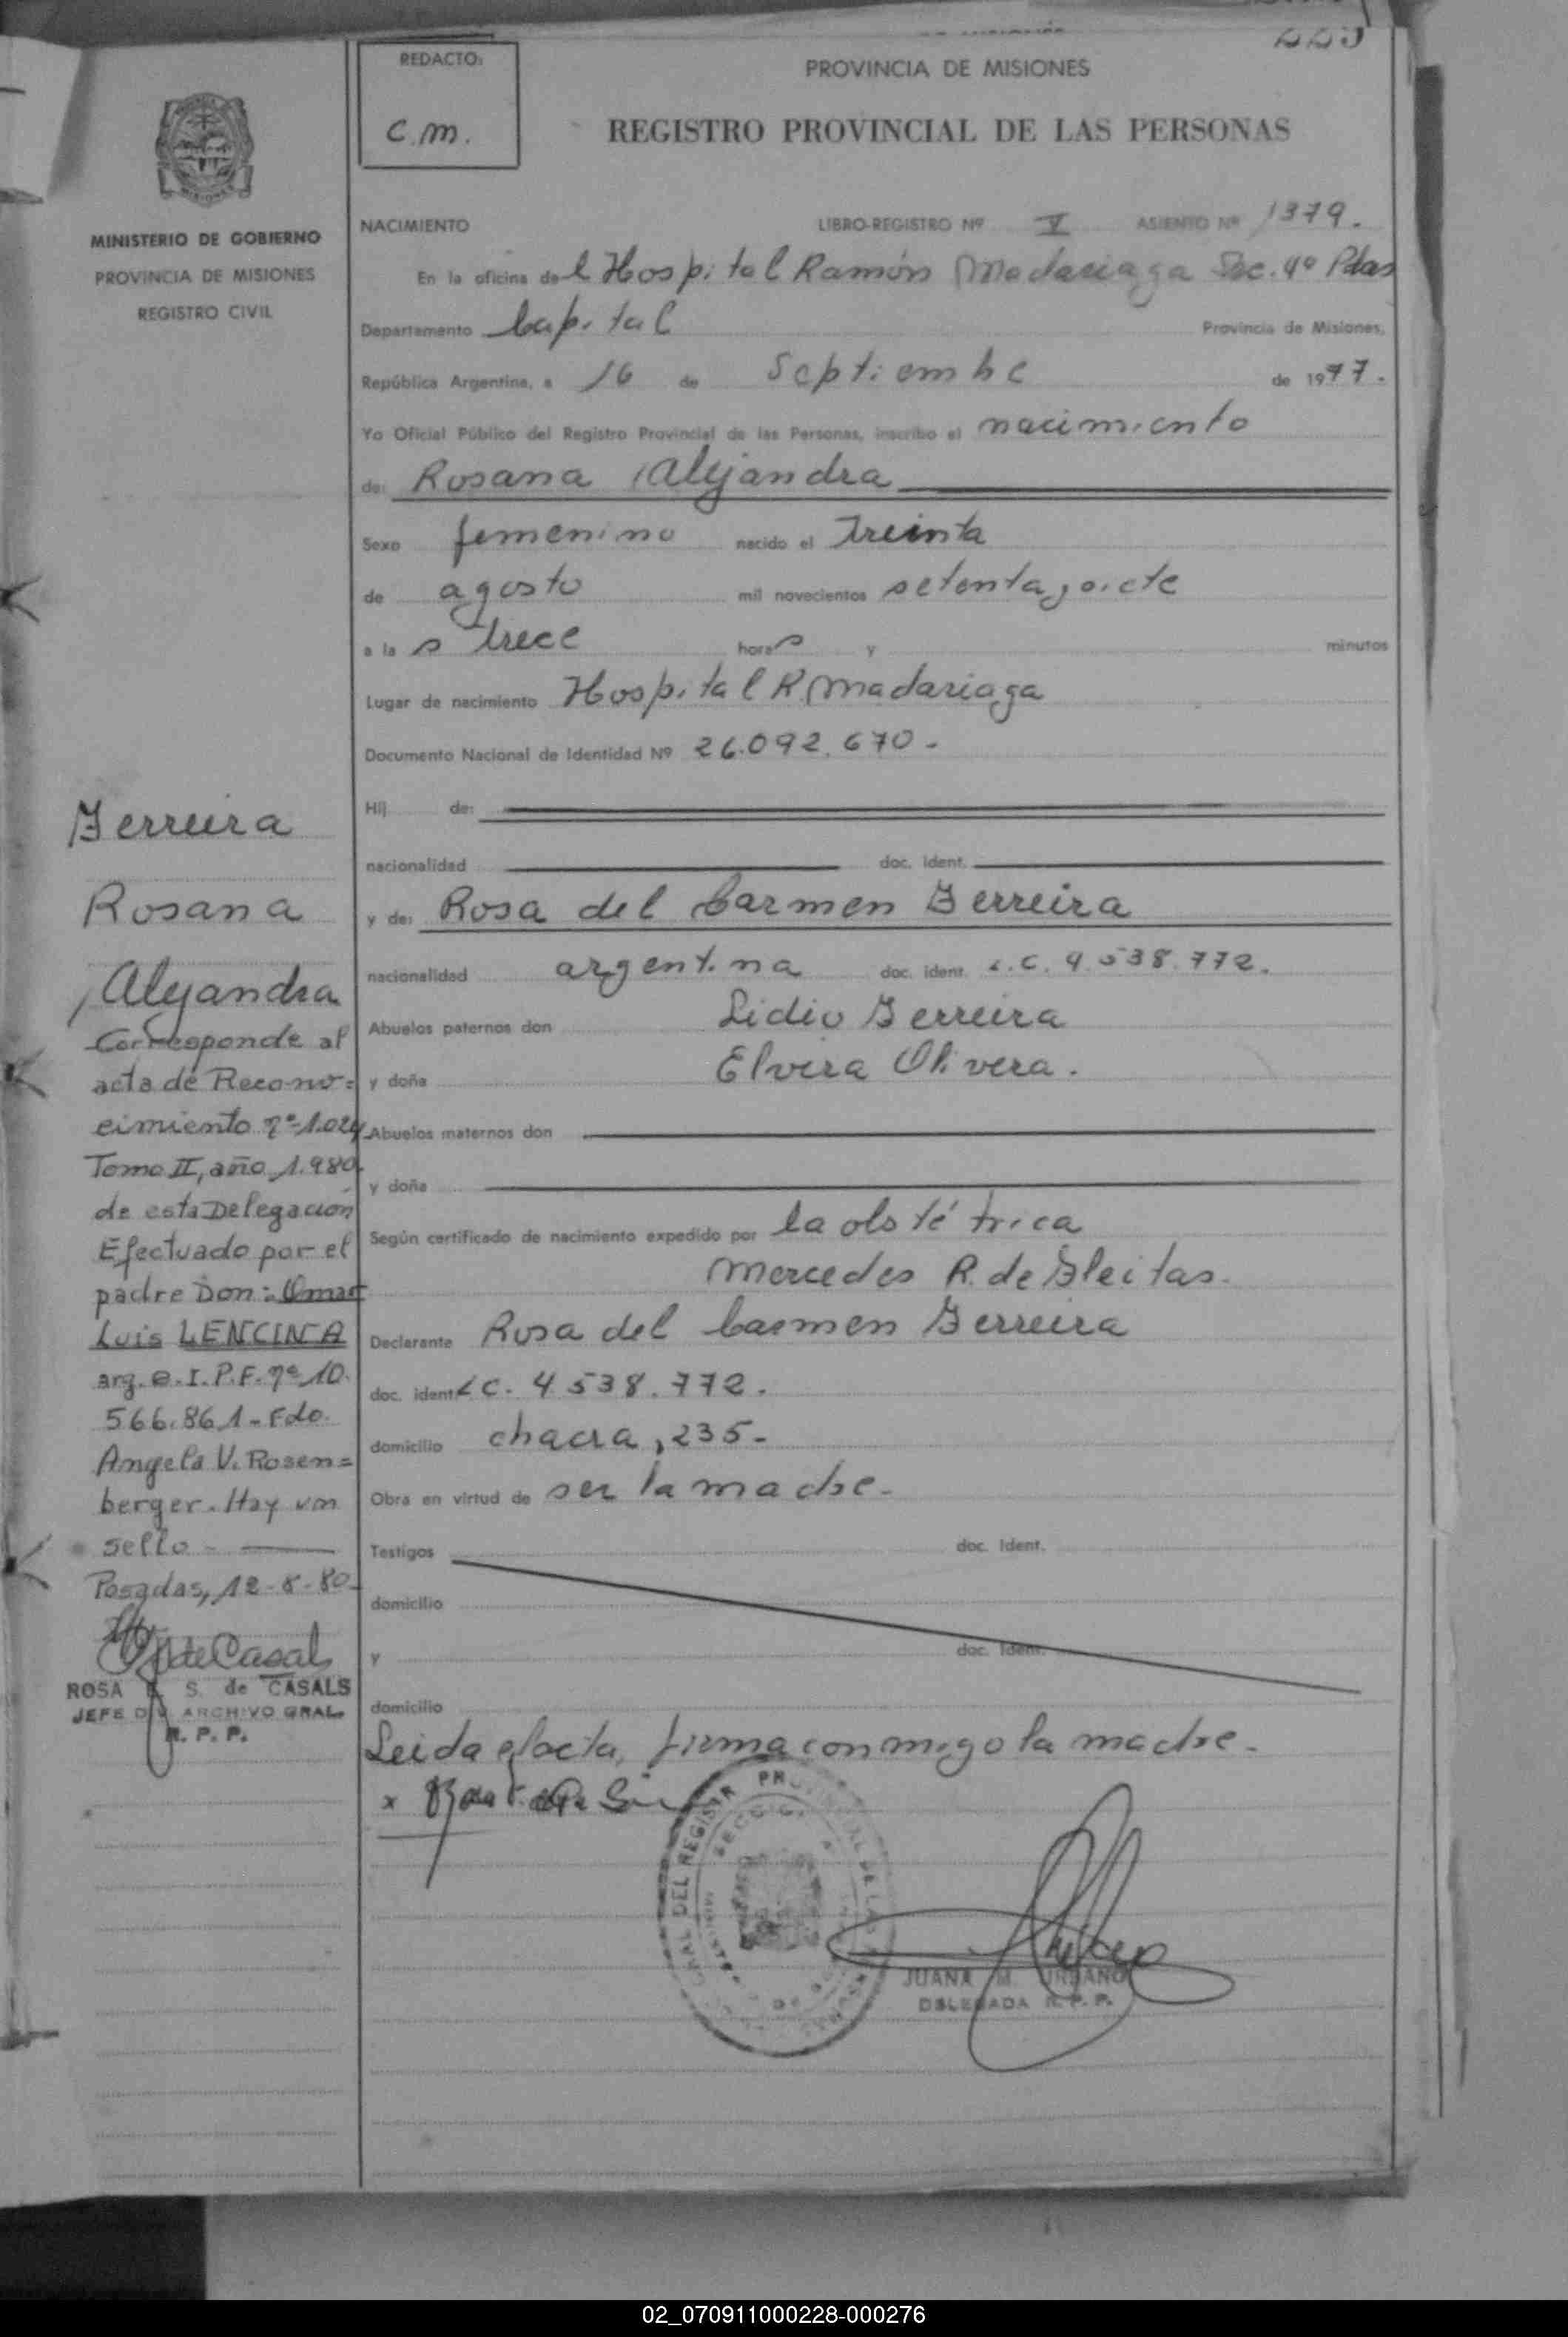 223
REDACTO:
C.M.
PROVINCIA DE MISIONES
REGISTRO PROVINCIAL DE LAS PERSONAS
MINISTERIO DE GOBIERNO
PROVINCIA DE MISIONES
REGISTRO CIVIL
NACIMIENTO LIBRO-REGISTRO Nº V ASIENTO Nº 1379.
En la oficina del Hospital Ramón Madariaga Sec. 4º Pdas
Departamento Capital Provincia de Misiones,
República Argentina, a 16 de Septiembre de 1977.
Yo Oficial Público del Registro Provincial de las Personas, inscribo el nacimiento
de: Rosana Alejandra
Sexo femenino nacido el Treinta
de agosto mil novecientos setenta y siete
a las trece horas y minutos
Lugar de nacimiento Hospital R. Madariaga
Documento Nacional de Identidad Nº 26.092.670.-
Hij de:
nacionalidad doc. ident.
y de: Rosa del Carmen Ferreira
nacionalidad argentina doc. ident. L.C. 4.538.772.
Abuelos paternos don Lidio Ferreira
y doña Elvira Olivera.
Abuelos maternos don
y doña
Según certificado de nacimiento expedido por la obstétrica
Mercedes R. de Fleitas.
Declarante Rosa del Carmen Ferreira
doc. ident. L.C. 4.538.772.
domicilio chacra, 235-
Obra en virtud de ser la madre-
Testigos doc. ident.
domicilio
y doc. ident.
domicilio
Leida el acta, firma conmigo la madre-
x
JUANA M. URBANO
DELEGADA R.P.P.
Ferreira
Rosana
Alejandra
Corresponde al
acta de Recono=
cimiento nº 1.024
Tomo II, año 1.980
de esta Delegación
Efectuado por el
padre Don: Omar
Luis LENCINA
arg. C.I.P.F. nº 10.
566.861 - Fdo.
Angela V. Rosen=
berger. Hay un
sello -
Posadas, 12-8-80
ROSA S. de CASALS
JEFE DIV ARCHIVO GRAL.
R.P.P.
02_070911000228-000276